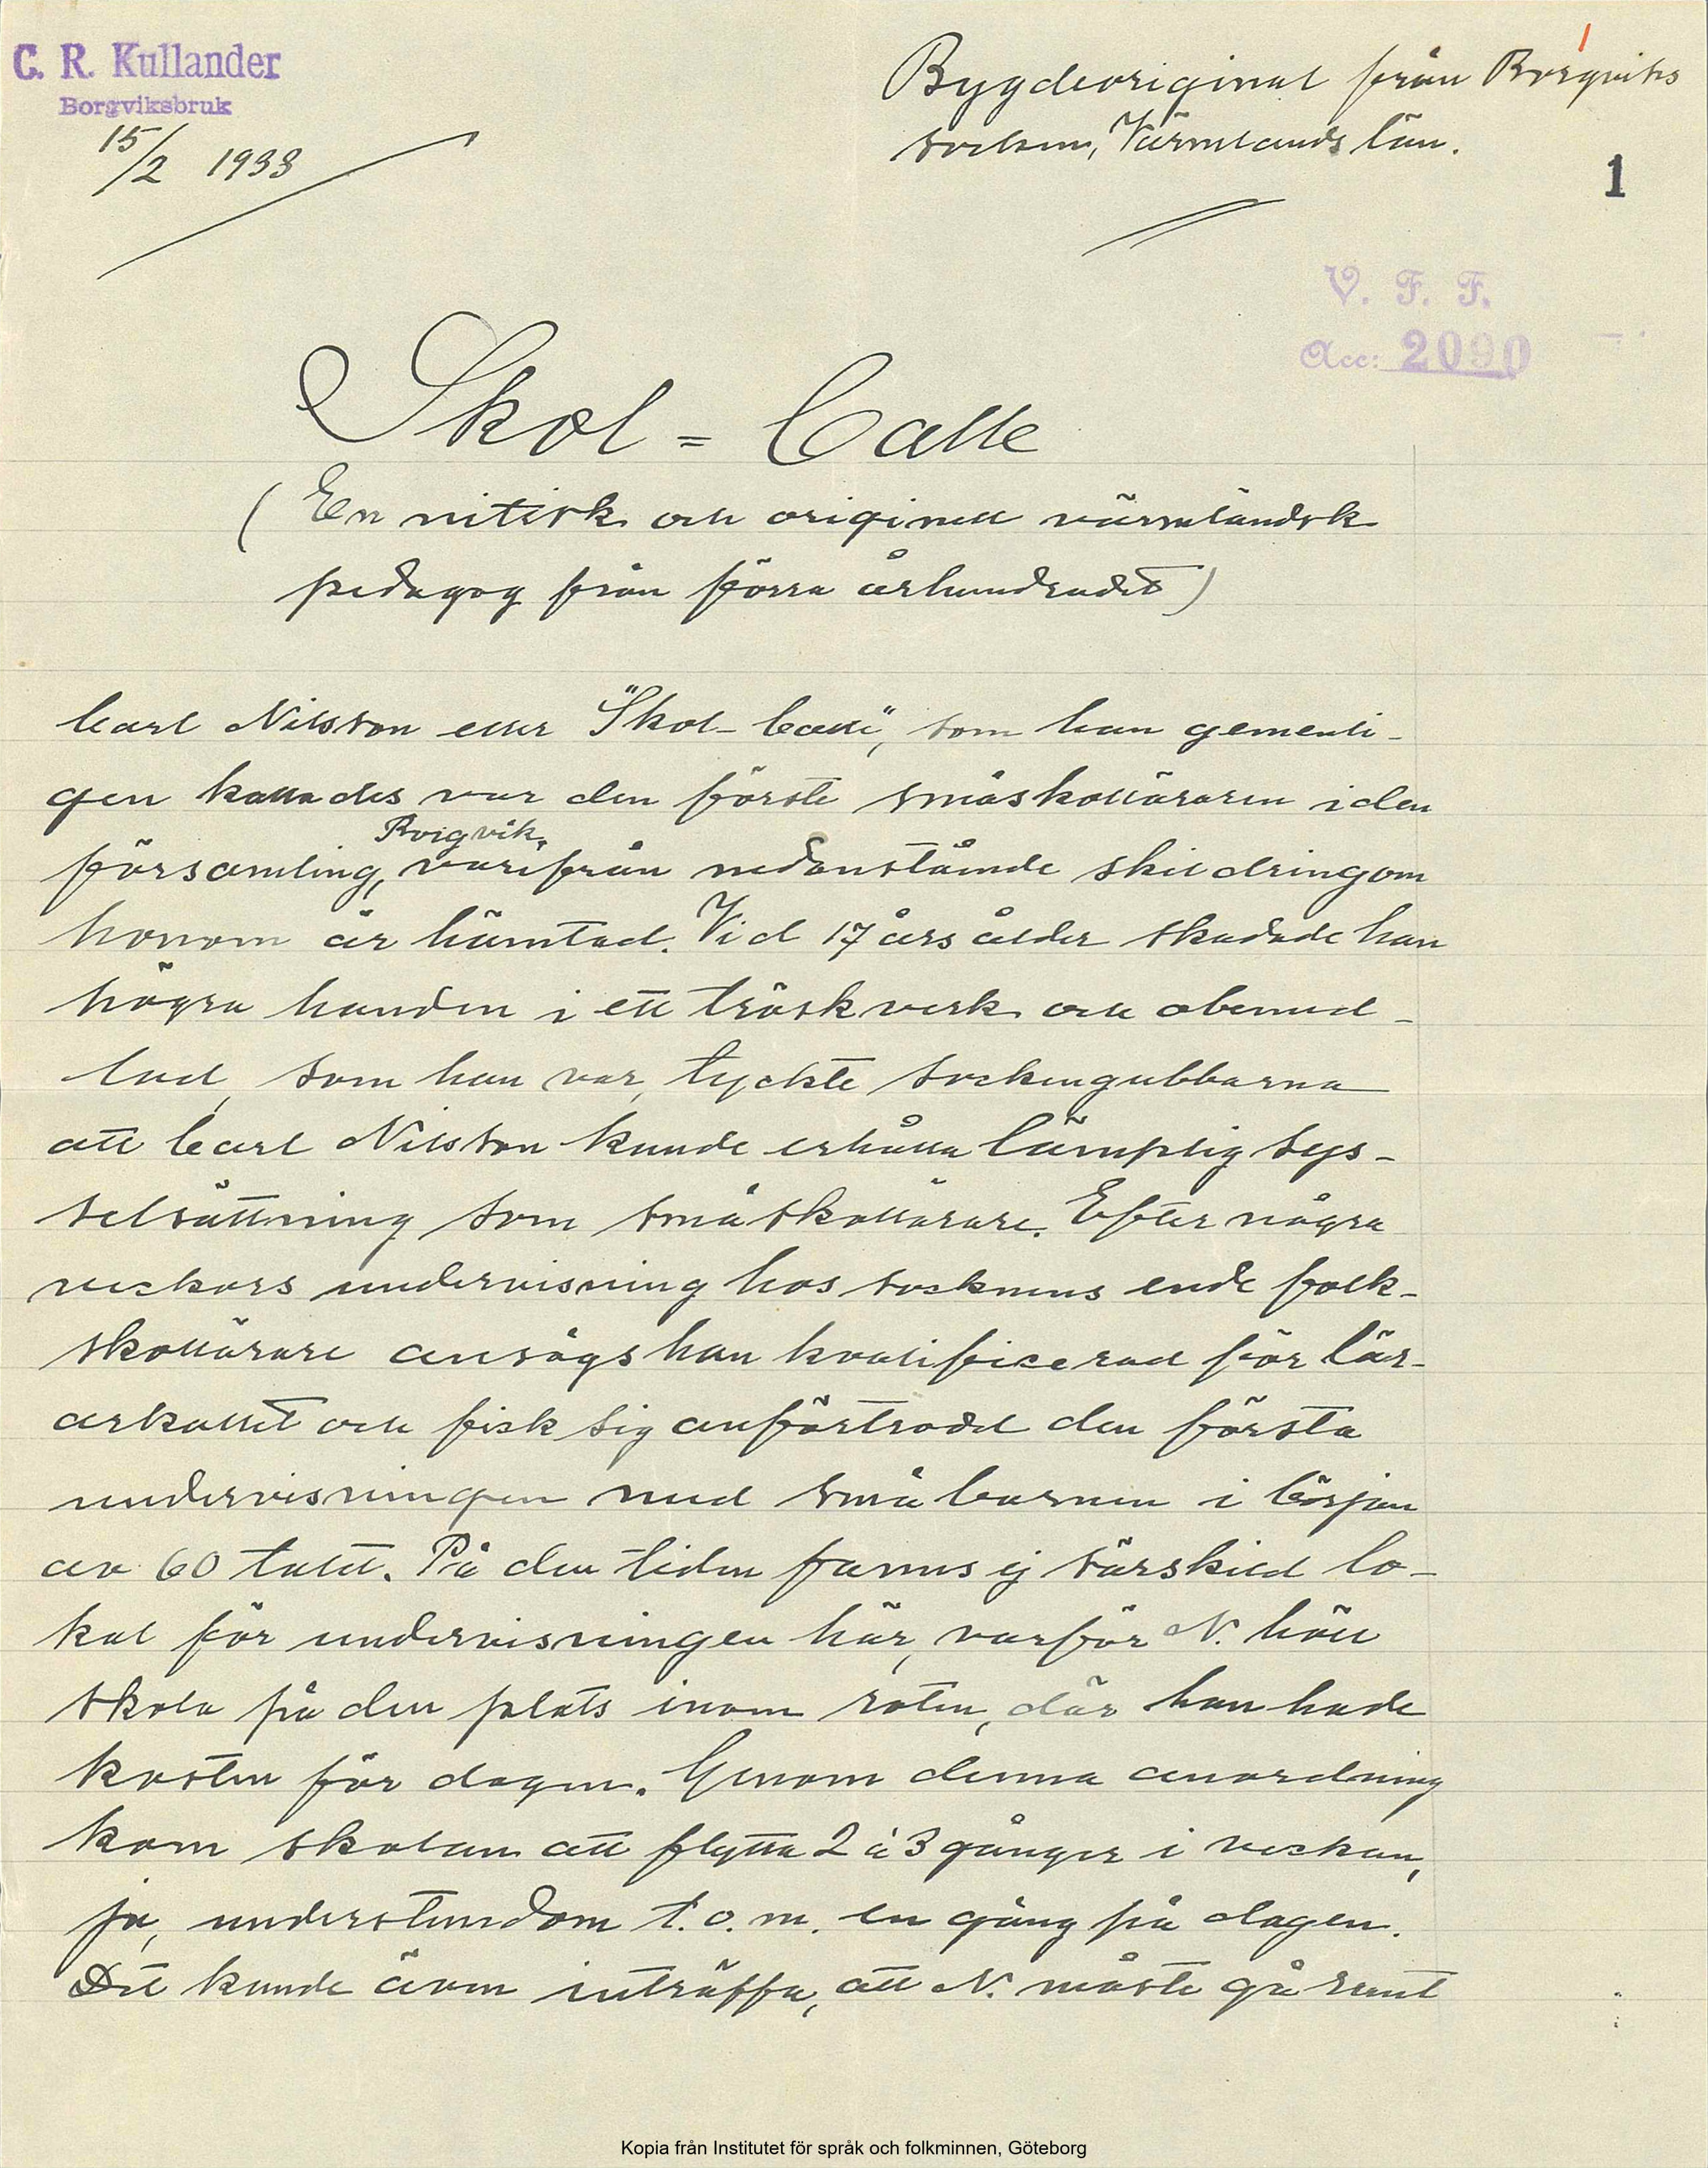 C. R. Kullander
Borgviksbruk
15/2 1933
Bygdeoriginal från Borgviks
socken, Värmlands län.
1
V. F. F.
Acc: 2090
Skol = Calle
(En nitisk och originell värmländsk
pedagog från förra århundradet)
Carl Nilsson eller "Skol-Calle", som han gemenli-
gen kallades var den förste småskolläraren i den
Borgvik,
församling, varifrån nedanstående skildring om
honom är hämtad. Vid 17 års ålder skadade han
högra handen i ett tröskverk och obemed-
lad, som han var, tyckte sockengubbarna
att Carl Nilsson kunde erhålla lämplig sys-
selsättning som småskollärare. Efter några
veckors undervisning hos socknens ende folk-
skollärare ansågs han kvalificerad för lär-
arkallet och fick sig anförtrodd den första
undervisningen med småbarnen i början
av 60 talet. På den tiden fanns ej särskild lo-
kal för undervisningen här, varför N. höll
skola på den plats inom roten, där han hade
kosten för dagen. Genom denna anordning
kom skolan att flytta 2 à 3 gånger i veckan,
ja, understundom t.o.m. en gång på dagen.
Det kunde även inträffa, att N. måste gå runt
Kopia från Institutet för språk och folkminnen, Göteborg